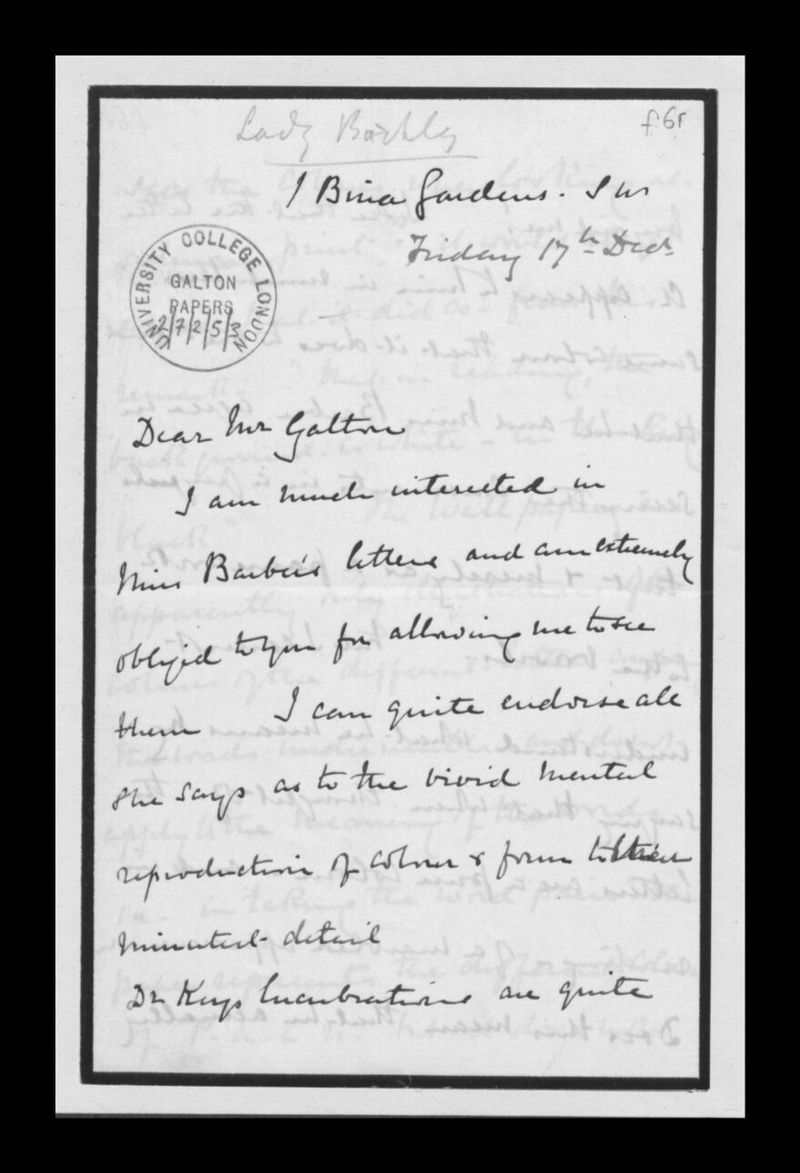 Lady Barkly
f.6r
1 Bina Gardens. S W
Friday 17th Decr
UNIVERSITY COLLEGE LONDON
GALTON
PAPERS
27253
Dear Mr Galton
I am much interested in
Miss Barber's letters and am extremely
obliged to you for allowing me to see
them I can quite endorse all
she says as to the vivid mental
reproduction of colour & form to their
minutest detail
Dr Keys lucubrations are quite